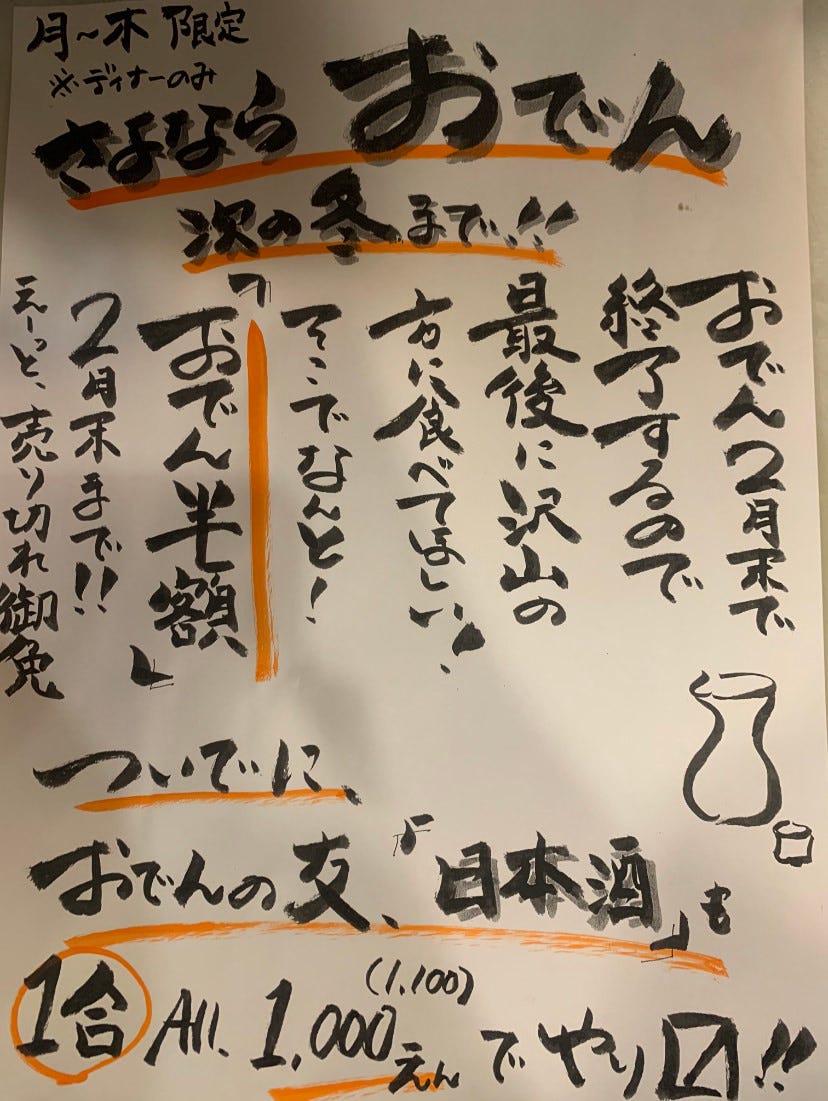 月〜木 限定
※ディナーのみ
さよなら おでん
次の冬まで!!
おでん2月末で
終了するので
最後に沢山の
方に食べてほしい!
そこでなんと!
「おでん半額」
2月末まで!!
えーっと、売り切れ御免
ついでに、
おでんの友、「日本酒」も
1合 All. 1,000えん (1,100) でやり〼!!